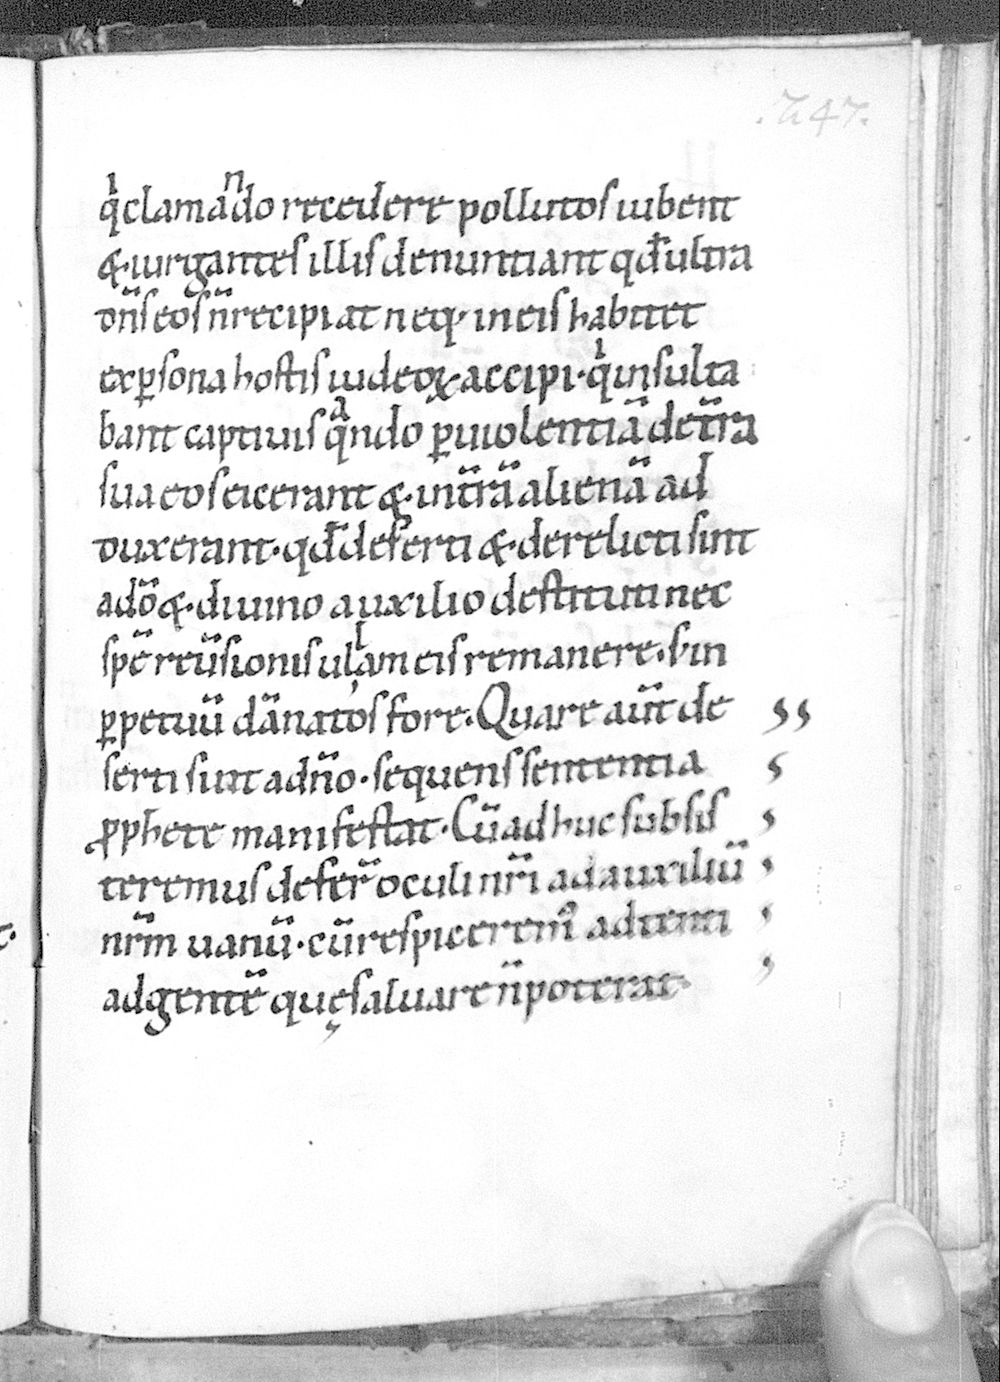 .747.
qͥclamaⁿdo recedere pollutos iubent
&·iurgantes illis denuntiant qđ ultra
dn̄s eos n̄ recipiat neq· in eis habitet
ex ꝑsona hostis iudeoꝝ accipi· qͥ insulta
bant captiuis qͣndo ꝑ uiolentiā de tr̄a
sua eos eicerant & in tr̄ā alienā ad
duxerant· qđ deserti &· derelicti sint
a dō &· diuino auxilio destituti nec
spē reūsionis ullam eis remanere· s; in
ꝑpetuū dānatos fore. Quare aūt de
serti sint a dn̄o· sequens sententia
ꝓphete manifestat. Cū adhuc subsis
teremus defecer̄ oculi nr̄i ad auxiliū
nr̄m uanū· cū respiceremꝰ adtenti
ad gentē quę saluare n̄ poterat·